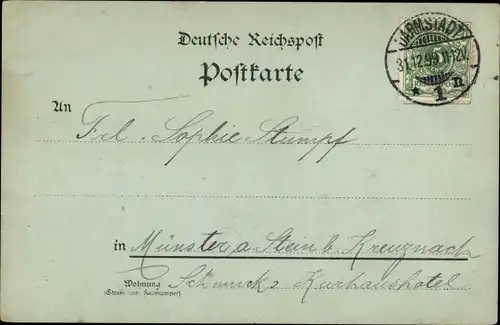 Deutsche Reichspost
Postkarte
DARMSTADT
31.12.99. 11-12V.
* 1 n
An
Frl. Sophie Stumpf
in Münster a. Stein b. Kreuznach
Wohnung
(Straße und Hausnummer)
Schmucks Kurhaushotel